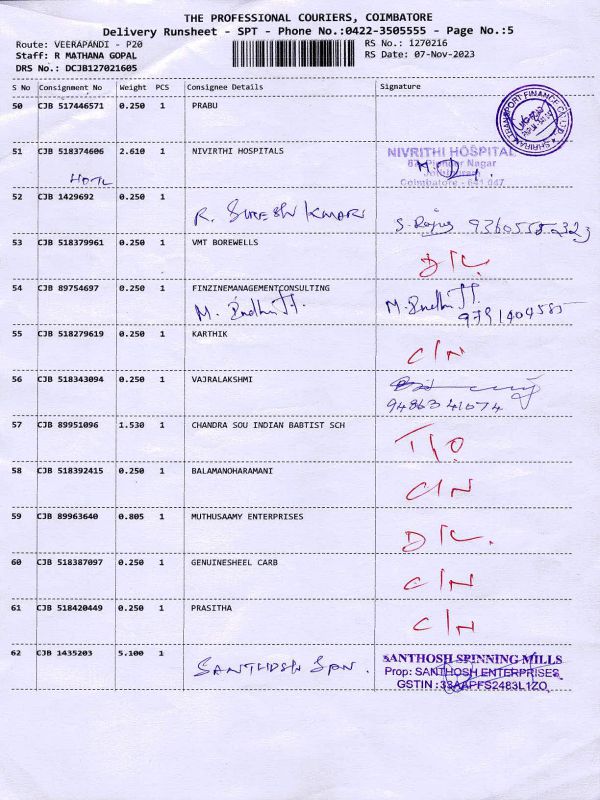 THE PROFESSIONAL COURIERS, COIMBATORE
Delivery Runsheet - SPT - Phone No.:0422-3505555 - Page No.:5
Route: VEERAPANDI - P20 RS No.: 1270216
Staff: R MATHANA GOPAL RS Date: 07-Nov-2023
DRS No.: DCJB127021605
S No Consignment No Weight PCS Consignee Details Signature
50 CJB 517446571 0.250 1 PRABU
51 CJB 518374606 2.610 1 NIVIRTHI HOSPITALS NIVRITHI HOSPITAL
Nagar
Coimbatore - 641 047
52 CJB 1429692 0.250 1
R. SURESH KUMAR 9360555
53 CJB 518379961 0.250 1 VMT BOREWELLS
D/L
54 CJB 89754697 0.250 1 FINZINEMANAGEMENTCONSULTING
9791409585
55 CJB 518279619 0.250 1 KARTHIK
C/N
56 CJB 518343094 0.250 1 VAJRALAKSHMI
9486341074
57 CJB 89951096 1.530 1 CHANDRA SOU INDIAN BABTIST SCH
T/O
58 CJB 518392415 0.250 1 BALAMANOHARAMANI
C/N
59 CJB 89963640 0.805 1 MUTHUSAAMY ENTERPRISES
D/L.
60 CJB 518387097 0.250 1 GENUINESHEEL CARB
C/N
61 CJB 518420449 0.250 1 PRASITHA
C/N
62 CJB 1435203 5.100 1 SANTHOSH SPINNING MILLS
SANTHOSH SPN. Prop: SANTHOSH ENTERPRISES
GSTIN : 33AAPFS2483L1ZO